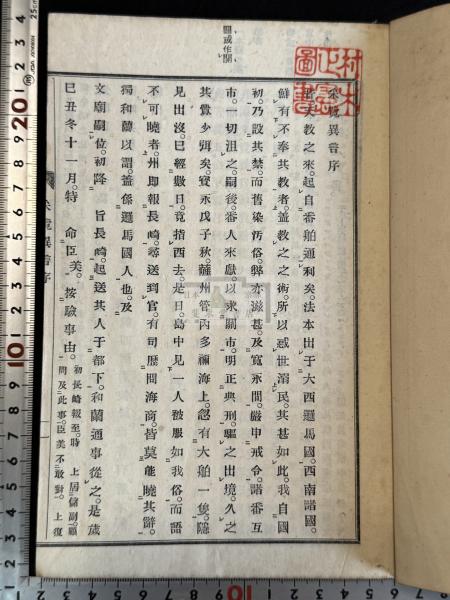 圖或作關
采覽異言序
天教之來。起自番舶通利矣。法本出于大西邏馬國。西南諸國。
鮮有不奉其教者。蓋教之之術。所以惑世溺民。其甚如此。我自國
初。乃設其禁。而舊染汚俗。弊亦滋甚。及寬永間。嚴申戒令。諸番互
市。一切沮之。嗣後番人來獻。以求關市。明正典刑。驅之出境。久之
其釁少弭矣。寶永戊子秋。薩州管內多禰海上。忽有大舶一隻。隱
見出沒。已經數日。竟指西去。是日。島中見一人被服如我俗。而語
不可曉者。州即報長崎。尋送到官。有司歷問海商。皆莫能曉其辭。
獨和蘭以謂。蓋係邏馬國人也。及
文廟嗣位。初降 旨長崎。起送其人于都下。和蘭通事從之。是歲
巳丑冬十一月。特 命臣美。按驗事由。初長崎報至。時 上居儲副。顧
問及此事。臣美不敢對。上復
采覽異言序
村木
圖書